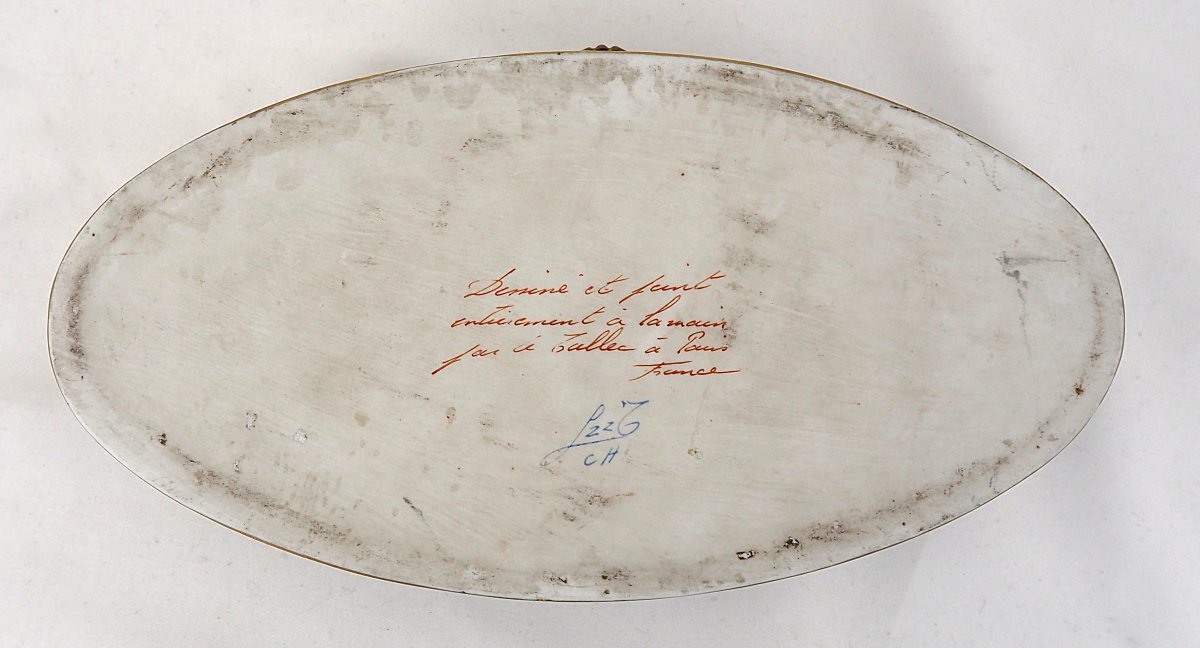 Dessiné et peint
entièrement à la main
par Le Tallec à Paris
France
CH